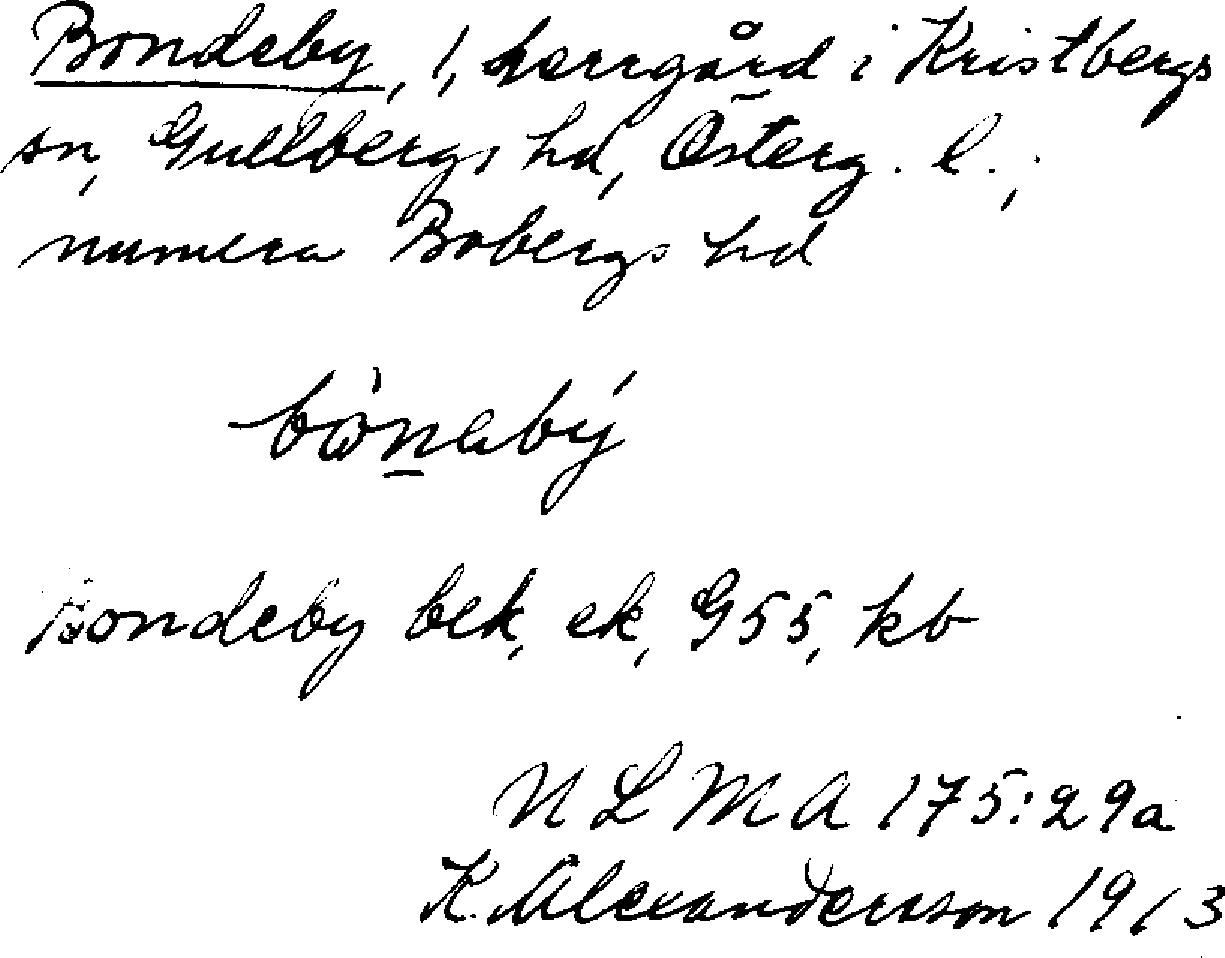 Bondeby, 1, herrgård i Kristbergs
sn, Gullbergs hd, Österg. l.;
numera Bobergs hd
Bondeby bek, ek, G55, kb
N L M A 175:29a
K. Alexandersson 1913